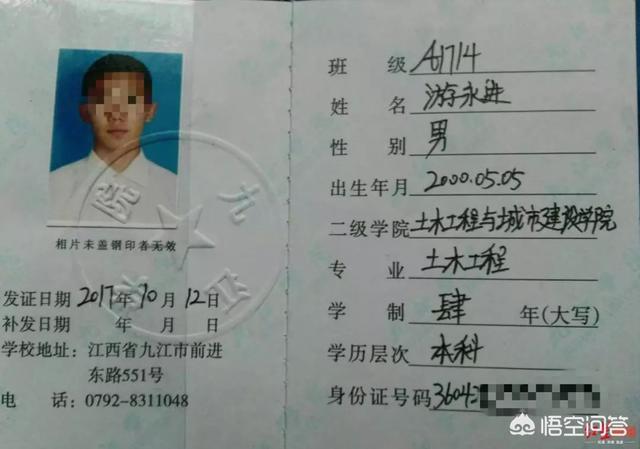 相片未盖钢印者无效
发证日期 2017年10月12日
补发日期 年 月 日
学校地址：江西省九江市前进
东路551号
电 话：0792-8311048
班 级 A1714
姓 名 游永进
性 别 男
出生年月 2000.05.05
二级学院 土木工程与城市建设学院
专 业 土木工程
学 制 肆 年(大写)
学历层次 本科
身份证号码 3604
悟空问答